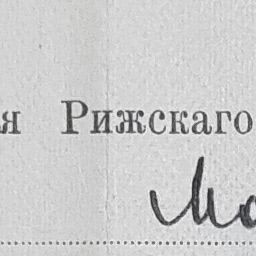 я Рижскаго
Мо